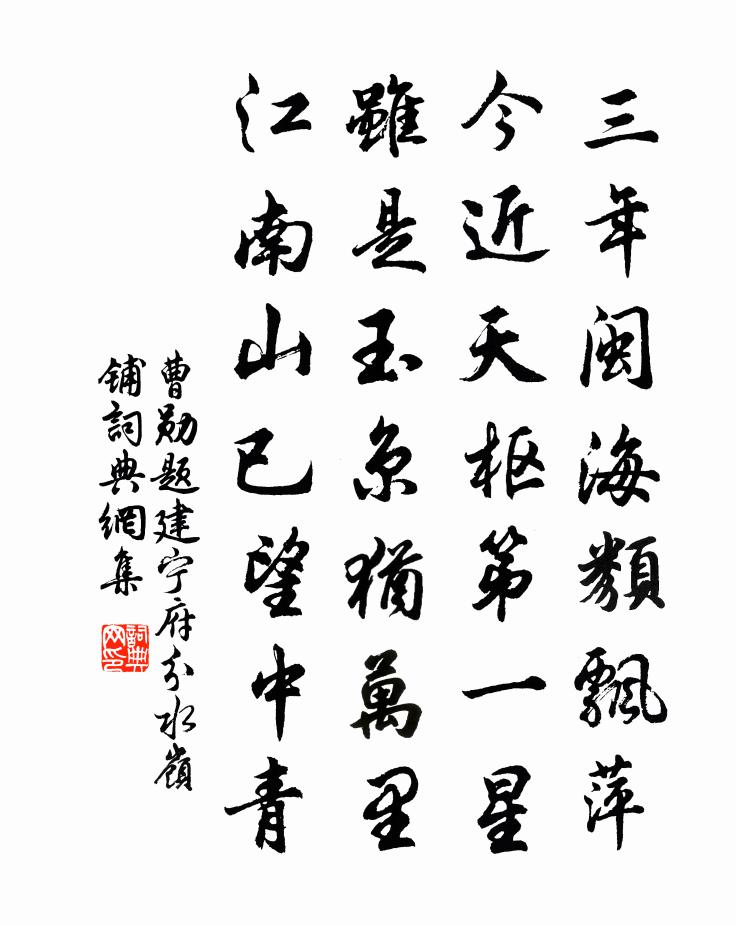 三年闽海類飄萍
今近天枢第一星
雖是玉京猶萬里
江南山已望中青
曹勋题建宁府分水嶺
铺詞典網集
詞典网印